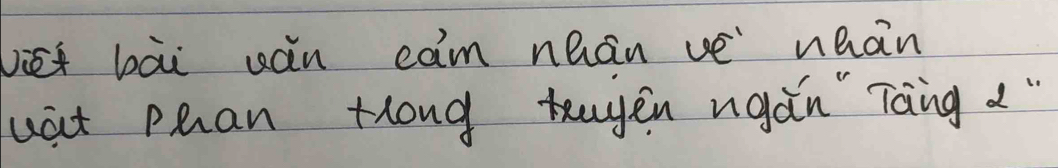 Viết bài văn cảm nhận về nhân
vật Phan trong truyện ngắn "Tầng 2"